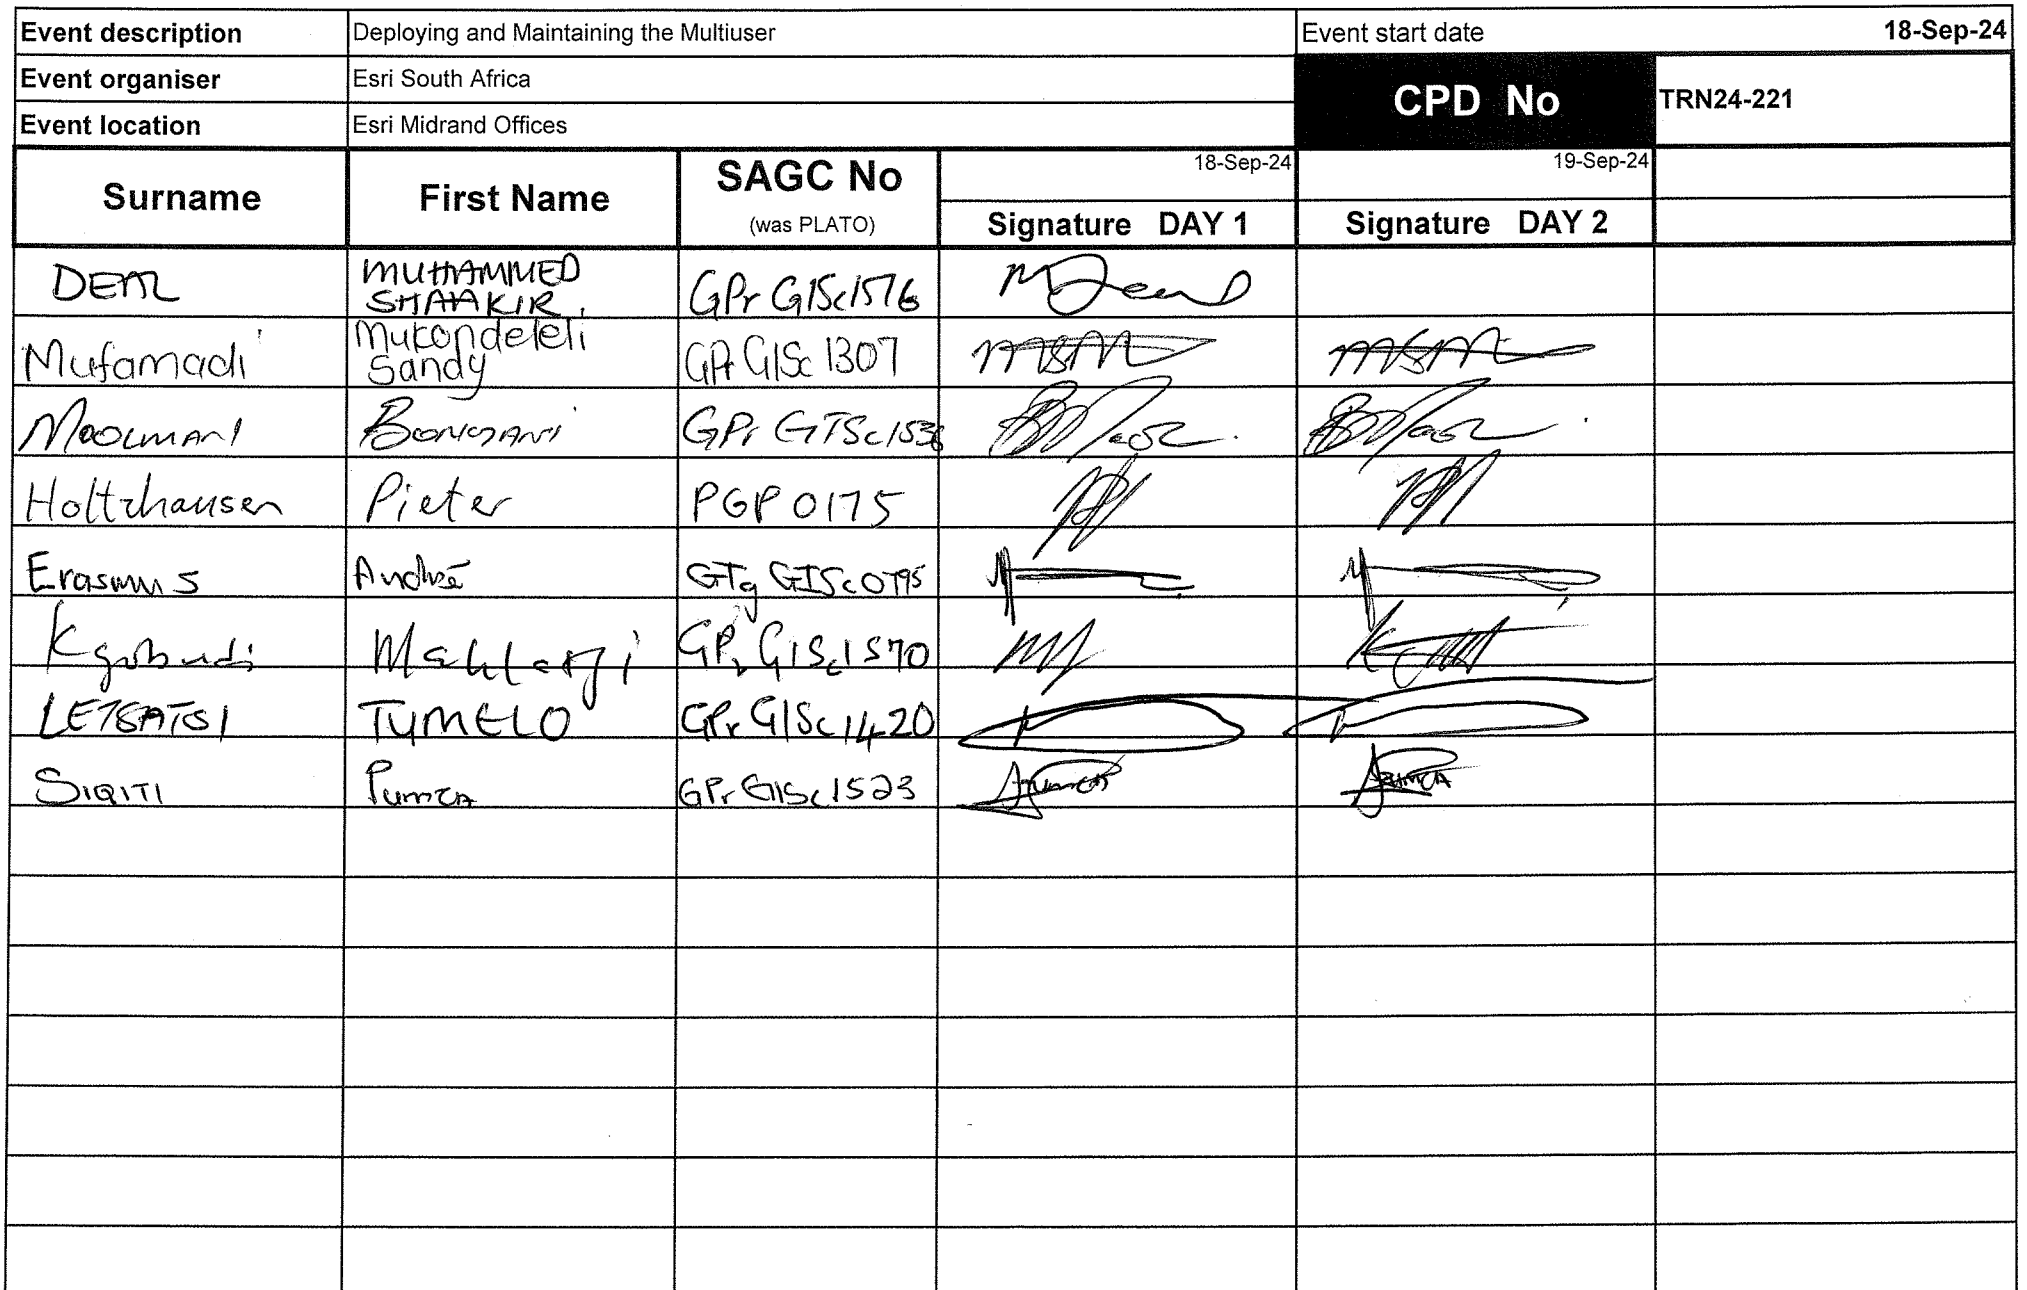 Event description Deploying and Maintaining the Multiuser Event start date 18-Sep-24
Event organiser Esri South Africa CPD No TRN24-221
Event location Esri Midrand Offices
Surname First Name SAGC No (was PLATO) 18-Sep-24 19-Sep-24
Signature DAY 1 Signature DAY 2
MUHAMMED
SHAAKIR GPr GISc1576
Mufamadi Mukondeleli
Sandy GPr GISc 1307
GPr GISc1536
Holtzhausen Pieter PGP 0175
Erasmus André GTg GISc0795
GPr GISc1570
LETSATSI TUMELO GPr GISc1420
SIQITI Pumza GPr GISc1523